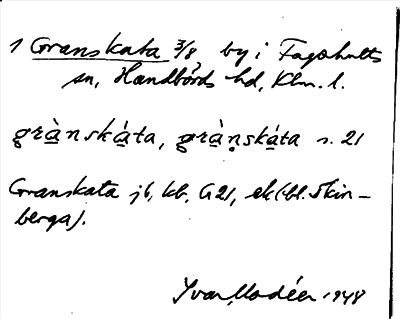 1 Granskata 3/8 by i Fagerhults
sn, Handbörds hd, Klm. l.
grà̱nská̱ta, grà̱ṇská̱ta s. 21
Granskata jb, kb, G21, ek(bl. Skin-
berga).
Yvar Modéer 1948